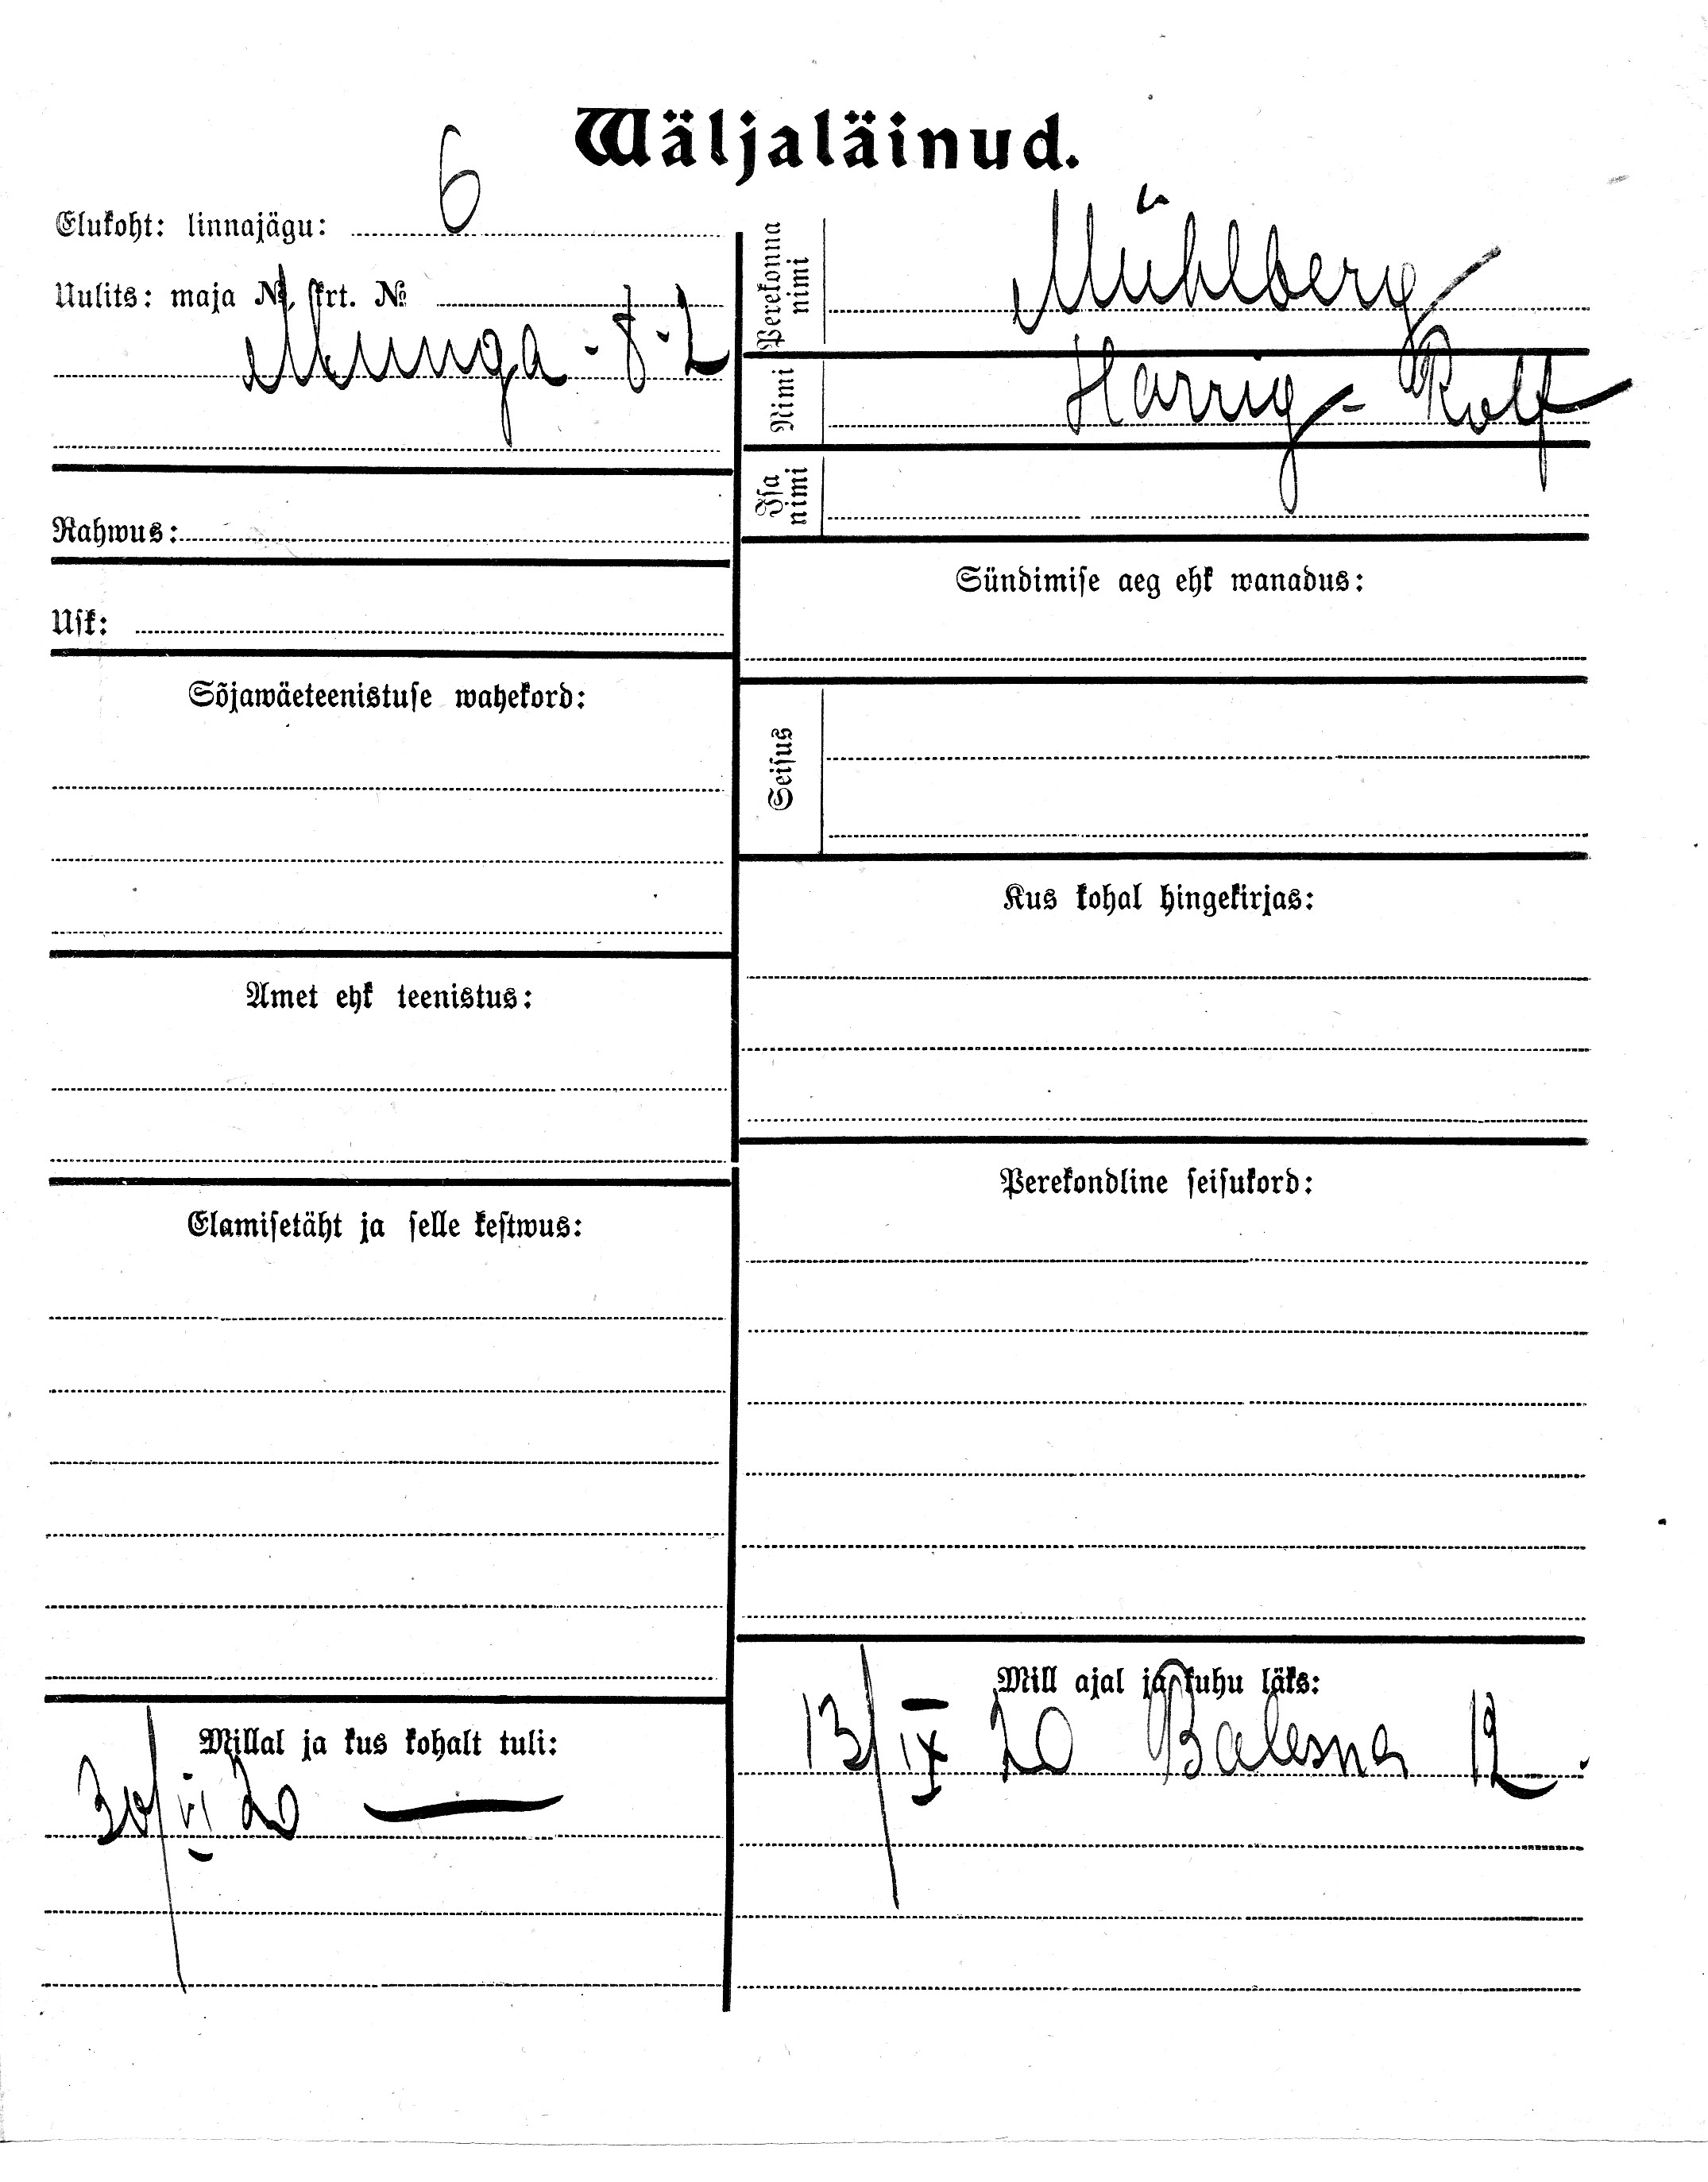 Wäljaläinud.
Elukoht: linnajägu: 6
Uulits: maja №, krt. №
Munga - 8 - 2
Rahwus:
Usk:
Sõjawäeteenistuse wahekord:
Amet ehk teenistus:
Elamisetäht ja selle kestwus:
Millal ja kus kohalt tuli:
30/VI 20 —
Perekonna nimi Mühlberg
Nimi Harrig - Rolf
Isa nimi
Sündimise aeg ehk wanadus:
Seisus
Kus kohal hingekirjas:
Perekondline seisukord:
Mill ajal ja kuhu läks:
13/IX 20 12.